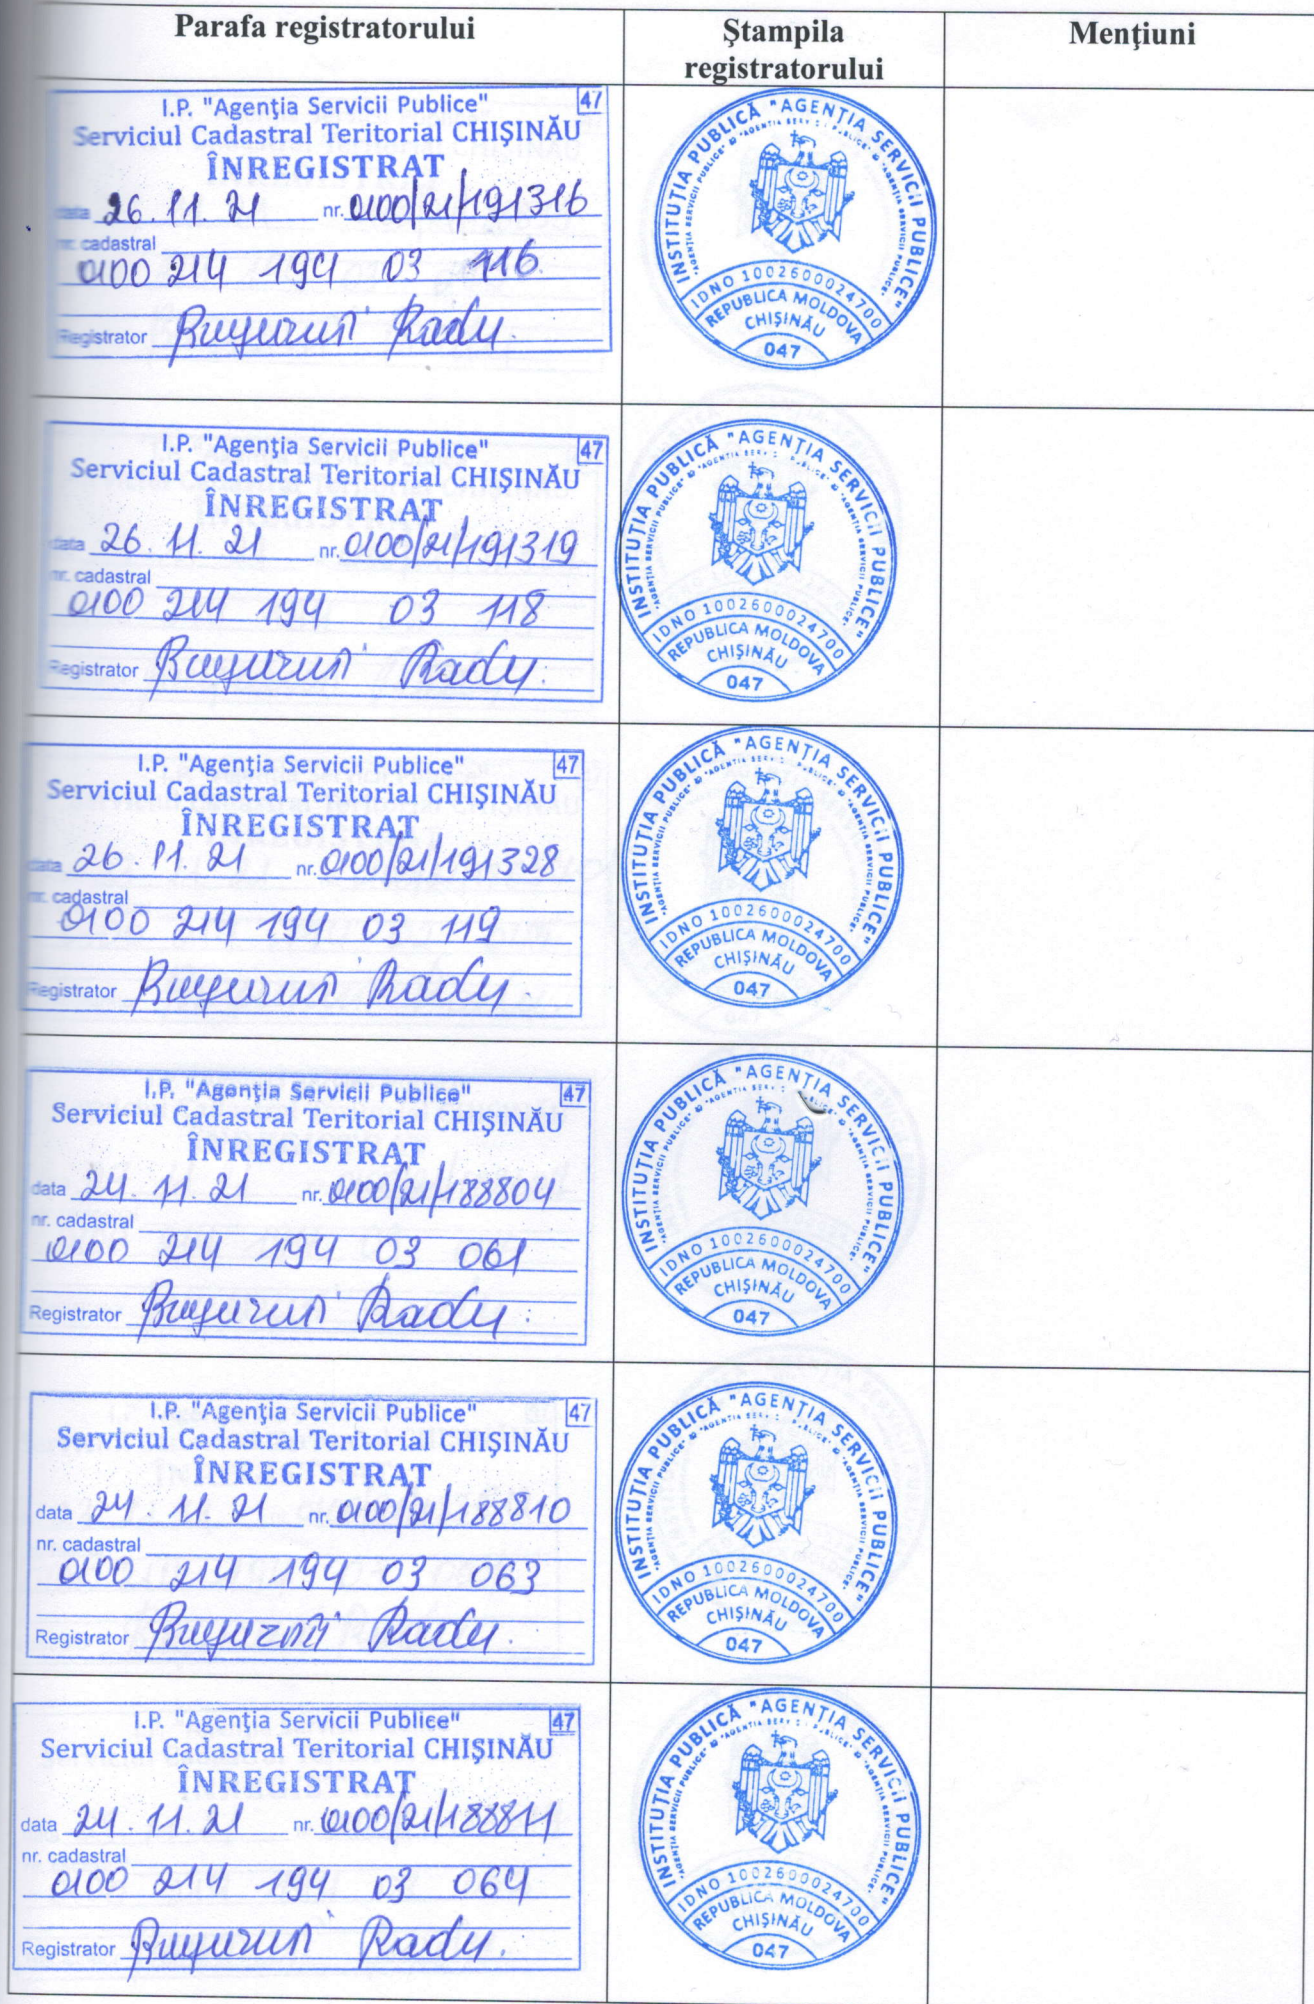 Parafa registratorului
Ştampila registratorului
Menţiuni
I.P. "Agenţia Servicii Publice" 47
Serviciul Cadastral Teritorial CHIŞINĂU
ÎNREGISTRAT
data 26.11.21 nr. 0100/21/191316
nr. cadastral
0100 214 194 03 116
Registrator Radu
INSTITUŢIA PUBLICĂ "AGENŢIA SERVICII PUBLICE"
IDNO 1002600024700
REPUBLICA MOLDOVA
CHIŞINĂU
047
I.P. "Agenţia Servicii Publice" 47
Serviciul Cadastral Teritorial CHIŞINĂU
ÎNREGISTRAT
data 26.11.21 nr. 0100/21/191319
nr. cadastral
0100 214 194 03 118
Registrator Radu
INSTITUŢIA PUBLICĂ "AGENŢIA SERVICII PUBLICE"
IDNO 1002600024700
REPUBLICA MOLDOVA
CHIŞINĂU
047
I.P. "Agenţia Servicii Publice" 47
Serviciul Cadastral Teritorial CHIŞINĂU
ÎNREGISTRAT
data 26.11.21 nr. 0100/21/191328
nr. cadastral
0100 214 194 03 119
Registrator Radu
INSTITUŢIA PUBLICĂ "AGENŢIA SERVICII PUBLICE"
IDNO 1002600024700
REPUBLICA MOLDOVA
CHIŞINĂU
047
I.P. "Agenţia Servicii Publice" 47
Serviciul Cadastral Teritorial CHIŞINĂU
ÎNREGISTRAT
data 24.11.21 nr. 0100/21/188804
nr. cadastral
0100 214 194 03 061
Registrator Radu
INSTITUŢIA PUBLICĂ "AGENŢIA SERVICII PUBLICE"
IDNO 1002600024700
REPUBLICA MOLDOVA
CHIŞINĂU
047
I.P. "Agenţia Servicii Publice" 47
Serviciul Cadastral Teritorial CHIŞINĂU
ÎNREGISTRAT
data 24.11.21 nr. 0100/21/188810
nr. cadastral
0100 214 194 03 063
Registrator Radu
INSTITUŢIA PUBLICĂ "AGENŢIA SERVICII PUBLICE"
IDNO 1002600024700
REPUBLICA MOLDOVA
CHIŞINĂU
047
I.P. "Agenţia Servicii Publice" 47
Serviciul Cadastral Teritorial CHIŞINĂU
ÎNREGISTRAT
data 24.11.21 nr. 0100/21/188811
nr. cadastral
0100 214 194 03 064
Registrator Radu
INSTITUŢIA PUBLICĂ "AGENŢIA SERVICII PUBLICE"
IDNO 1002600024700
REPUBLICA MOLDOVA
CHIŞINĂU
047